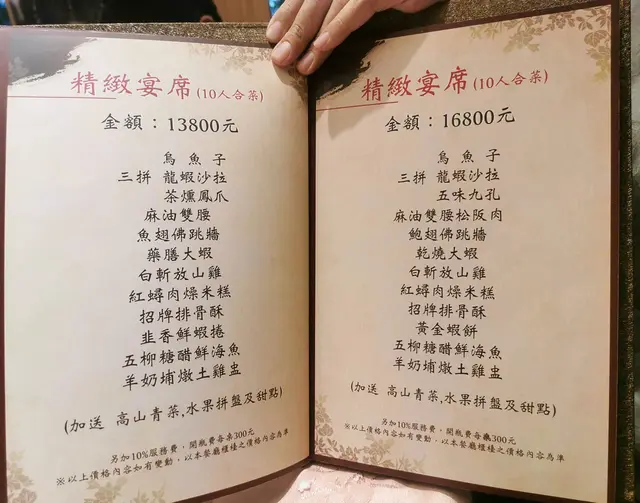 精緻宴席(10人合菜)
金額：13800元
烏魚子
三拼 龍蝦沙拉
茶燻鳳爪
麻油雙腰
魚翅佛跳牆
藥膳大蝦
白斬放山雞
紅蟳肉燥米糕
招牌排骨酥
韭香鮮蝦捲
五柳糖醋鮮海魚
羊奶埔燉土雞盅
(加送 高山青菜,水果拼盤及甜點)
另加10%服務費，開瓶費每桌300元
※以上價格內容如有變動，以本餐廳櫃檯之價格內容為準
精緻宴席(10人合菜)
金額：16800元
烏魚子
三拼 龍蝦沙拉
五味九孔
麻油雙腰松阪肉
鮑翅佛跳牆
乾燒大蝦
白斬放山雞
紅蟳肉燥米糕
招牌排骨酥
黃金蝦餅
五柳糖醋鮮海魚
羊奶埔燉土雞盅
(加送 高山青菜,水果拼盤及甜點)
另加10%服務費，開瓶費每桌300元
※以上價格內容如有變動，以本餐廳櫃檯之價格內容為準